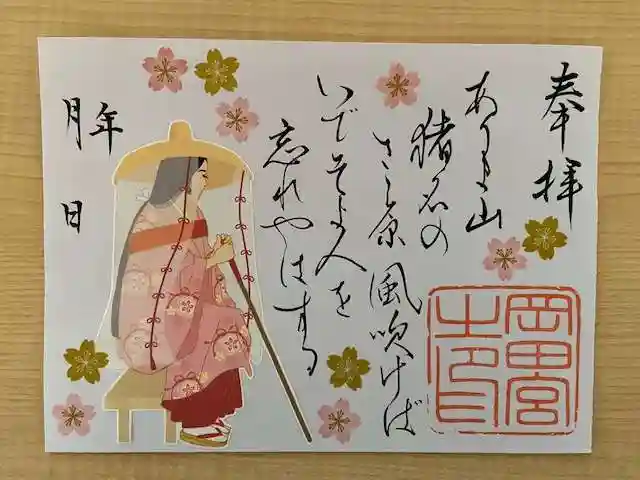 奉拝
ありま山
猪名の
さゝ原 風吹けば
いでそよ人を
忘れやはする
年
月 日
岡田宮